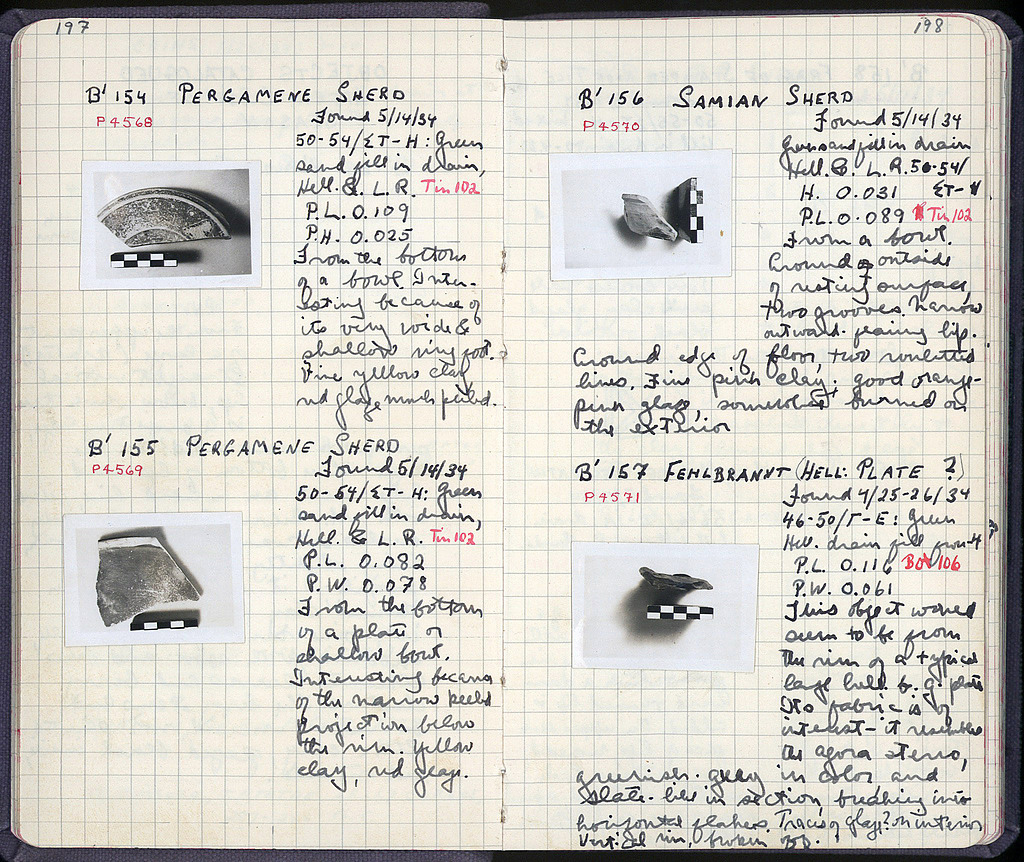 197
B' 154 PERGAMENE SHERD
P 4568
Found 5/14/34
50-54/ΣΤ-Η: Green
sand fill in drain,
Hell. & L. R. Tin 102
P.L. 0.109
P.H. 0.025
From the bottom
of a bowl. Inter-
esting because of
its very wide &
shallow ring foot.
Fine yellow clay,
red glaze much peeled.
B' 155 PERGAMENE SHERD
P 4569
Found 5/14/34
50-54/ΣΤ-Η: Green
sand fill in drain,
Hell. & L. R. Tin 102
P.L. 0.082
P.W. 0.078
From the bottom
of a plate or
shallow bowl.
Interesting because
of the narrow
projection below
the rim. Yellow
clay, red glaze.
198
B' 156 SAMIAN SHERD
P 4570
Found 5/14/34
Green sand fill in drain
Hell. & L. R. 50-54/
H. 0.031 ΣΤ-
P.L. 0.089 Tin 102
From a bowl.
Around outside
of resting surface,
two grooves. Narrow
outward-facing lip.
Around edge of floor, two rouletted
lines. Fine pink clay; good orange-
pink glaze, somewhat burned on
the exterior
B' 157 FEHLBRANNT (HELL: PLATE ?)
P 4571
Found 4/25-26/34
46-50/Γ-Ε: Green
Hell. drain fill
P.L. 0.116 106
P.W. 0.061
This object would
seem to be from
the rim of a typical
large hell. b. g. plate
Its fabric is of
interest - it resembles
the agora steno,
greenish-grey in color and
slate-like in section, breaking into
horizontal flakes. Traces of glaze? on interior
Vertical rim, broken off.